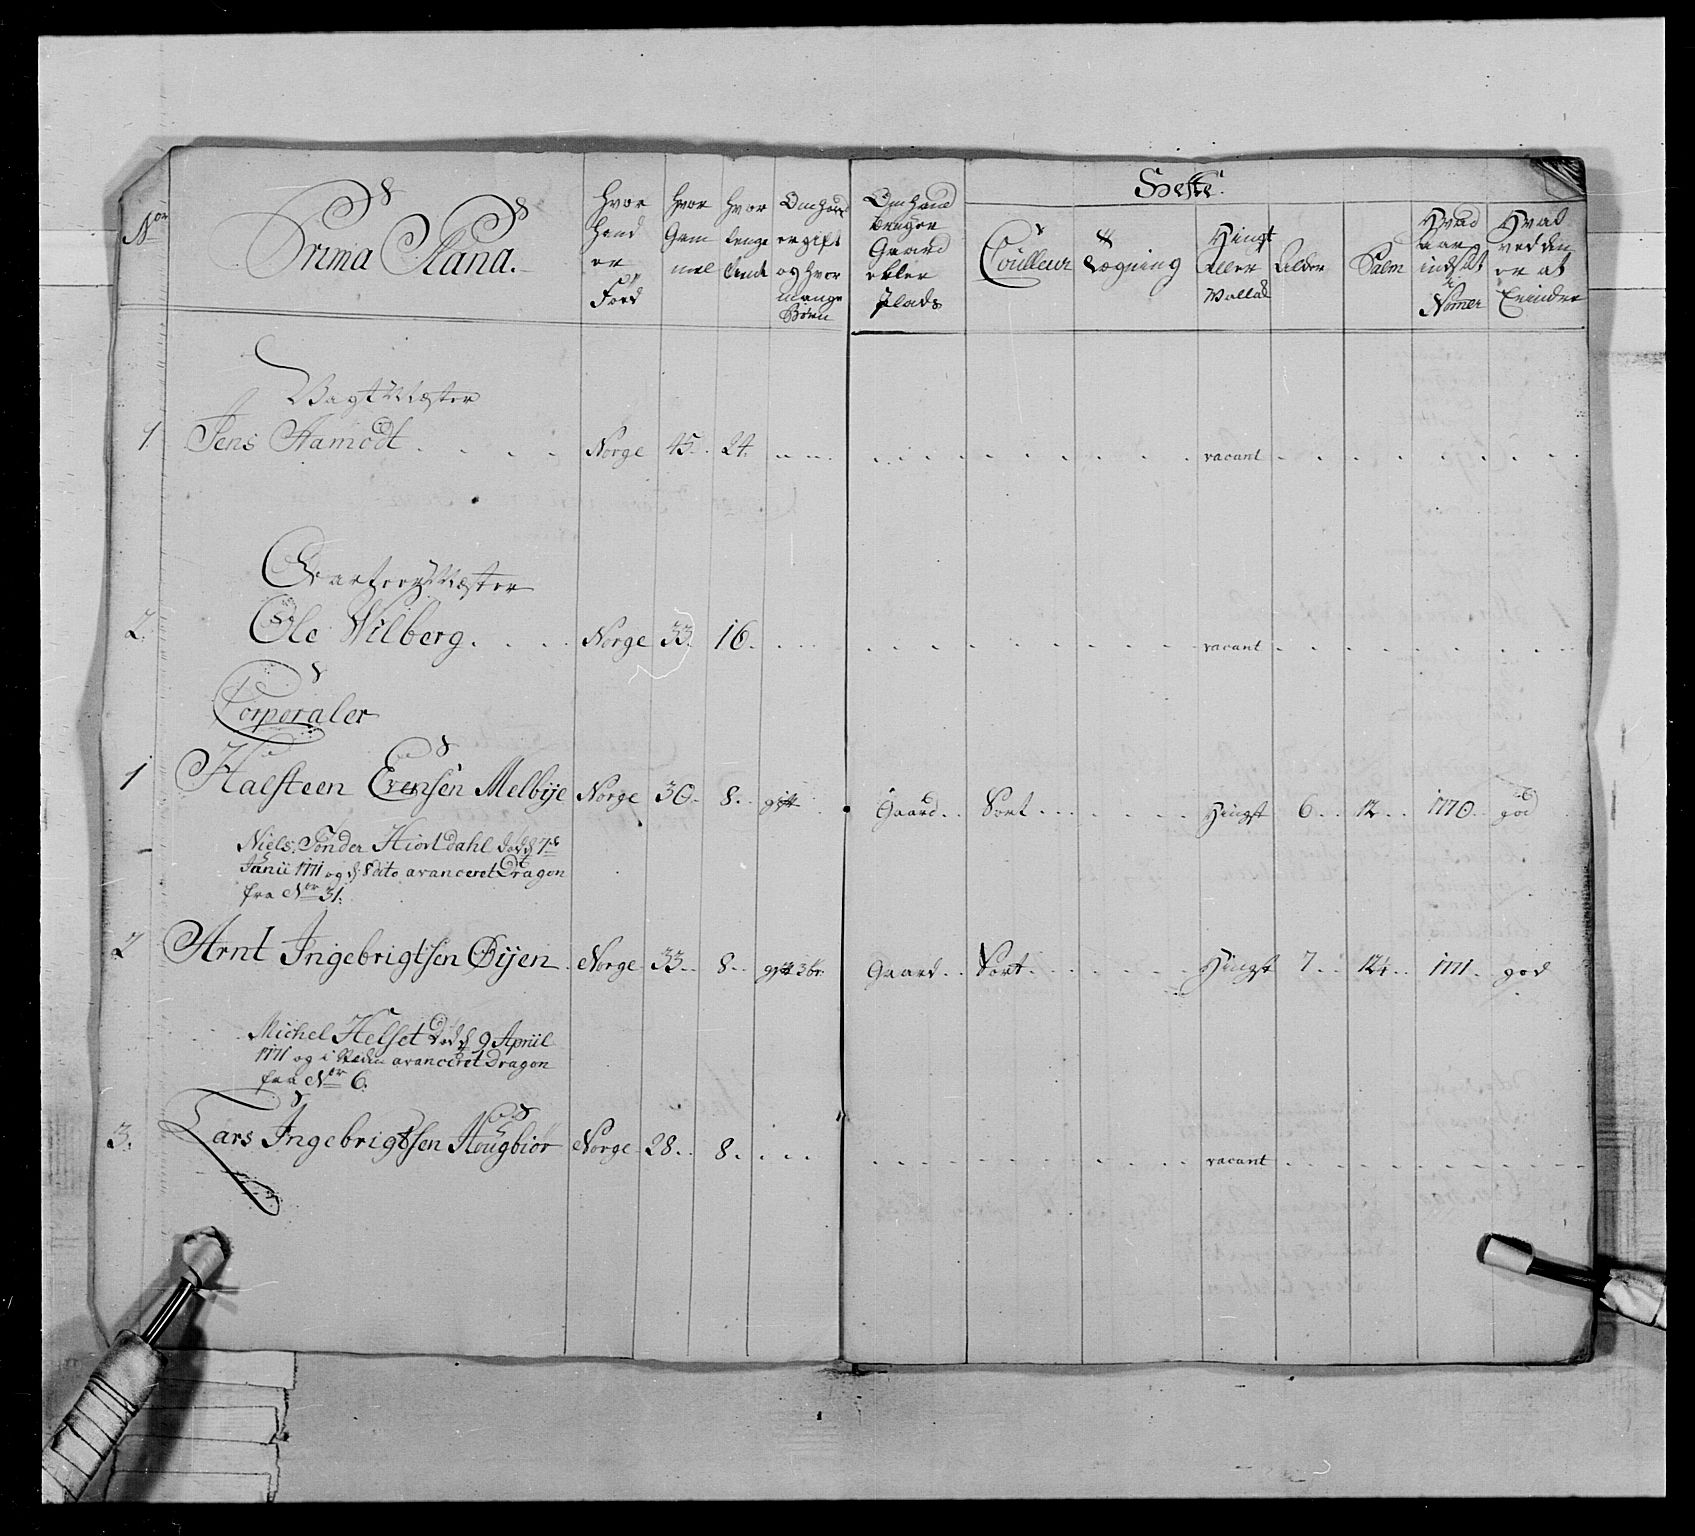 Heste.
Nor Prima Plana. Hvor Hand er Fød Hvor Gam mel Hvor lenge tient Om Hand er gift og hvor mange Børn Om Hand bruger Gaard eller Plads Coulleur Tegning Hingst Eller Vallak Alder Palm Hvad aar indsat Nomer Hvad ved den er at Erindre
Vagt Mester
1 Jens Aamodt . . . . Norge 45. 24. vacant
Qvarteer Mester
2. Ole Vilberg. . . . Norge 33. 16. vacant
Corporaler
1 Halsteen Evensen Melbije Norge 30. 8. gift Gaard. Sort Hingst 6. 12. 1770. god
Niels Tønder Hiortdahl Død d 7de
Junii 1771 og d 8 dito avanceret Dragon
fra Nor 31.
2 Arnt Ingebrigtsen Øijen. Norge 33. 8. gift 3 br. Gaard. Sort. Hingst 7. 12¼. 1771. god
Michel Helset Død d 9 Apriil
1771 og i Steden avanceret Dragon
fra Nor 6.
3. Lars Ingebrigtsen Hougbiør Norge 28. 8. vacant